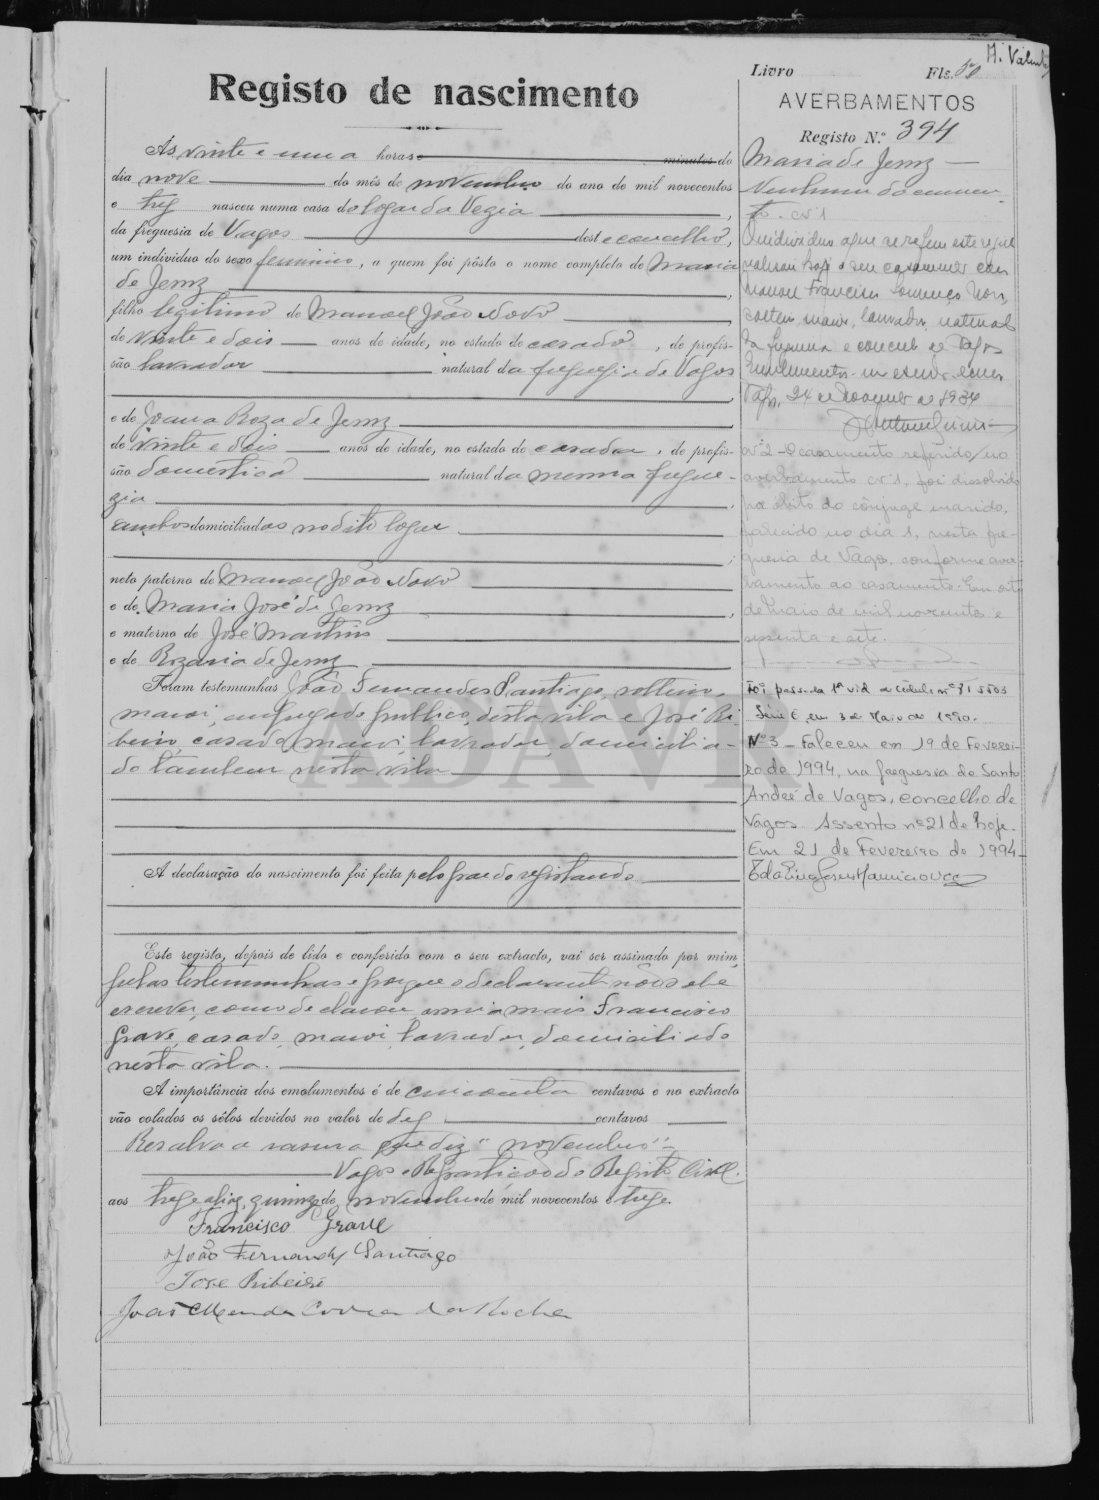 H. Valente
Livro Fls. 50
Registo de nascimento
AVERBAMENTOS
Registo N.º 394
Ás vinte e uma horas e minutos do
dia nove do mês de novembro do ano de mil novecentos
e treze nasceu numa casa do logar da Vezia,
da freguesia de Vagos deste concelho,
um individuo do sexo feminino, a quem foi pôsto o nome completo de Maria
de Jesuz,
filho legitimo de Manoel João Novo,
de vinte e dois anos de idade, no estado de casado, de profis-
são lavrador natural da freguezia de Vagos
e de Joana Roza de Jesuz
de vinte e dois anos de idade, no estado de casada, de profis-
são domestica natural da mesma fregue-
zia,
ambos domiciliados no dito logar
neto paterno de Manoel João Novo
e de Maria José de Jesuz,
e materno de José Martins
e de Rozaria de Jesuz
Foram testemunhas João Fernandes Santiago, solteiro,
maior, empregado publico, desta vila e José Ri-
beiro, casado, maior, lavrador, domicilia-
do tambem nesta vila
A declaração do nascimento foi feita pelo pae do registando
Este registo, depois de lido e conferido com o seu extracto, vai ser assinado por mim,
pelas testemunhas e porque o declarante não sabe
escrever, como declarou, assina mais Francisco
Grave, casado, maior, lavrador, domiciliado
nesta vila.
A importância dos emolumentos é de cincoenta centavos e no extracto
vão colados os sêlos devidos no valor de dez centavos
Resalvo a rasura que diz "novembro"
Vagos e Repartição do Registo Civil.
aos treze aliaz, quinze de novembro de mil novecentos e treze.
Francisco Grave
João Fernandes Santiago
José Ribeiro
João Mendes Correa da Rocha
Maria de Jesuz
Nenhum documen-
to. nº 1
O individuo a que se refere este registo
realisou hoje o seu casamento com
Manoel Francisco Lourenço Novo,
solteiro, maior, lavrador, natural
da freguesia e concelho de Vagos
Vagos, 24 de de 1934
nº 2 - O casamento referido no
averbamento nº 1, foi dissolvido
por óbito do cônjuge marido,
falecido no dia 1, nesta fre-
guesia de Vagos, conforme aver-
bamento ao casamento. Em oito
de Maio de mil novecentos e
sessenta e sete.
Foi passada 1ª via a cédula nº 815503
Série E, em 3 de Maio de 1990.
Nº 3 - Faleceu em 19 de Feverei-
ro de 1994, na freguesia de Santo
André de Vagos, concelho de
Vagos. Assento nº 21 de hoje.
Em 21 de Fevereiro de 1994
ADAVR